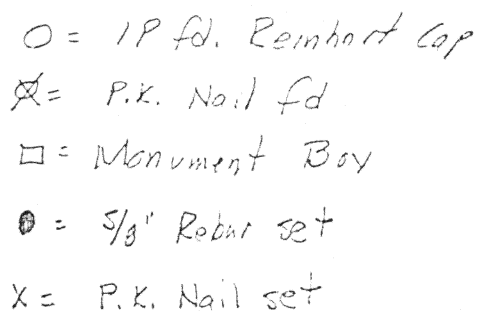 O = IP fd. Reinhart Cap
= P.K. Nail fd
□ = Monument Box
● = 5/8" Rebar set
X = P.K. Nail set